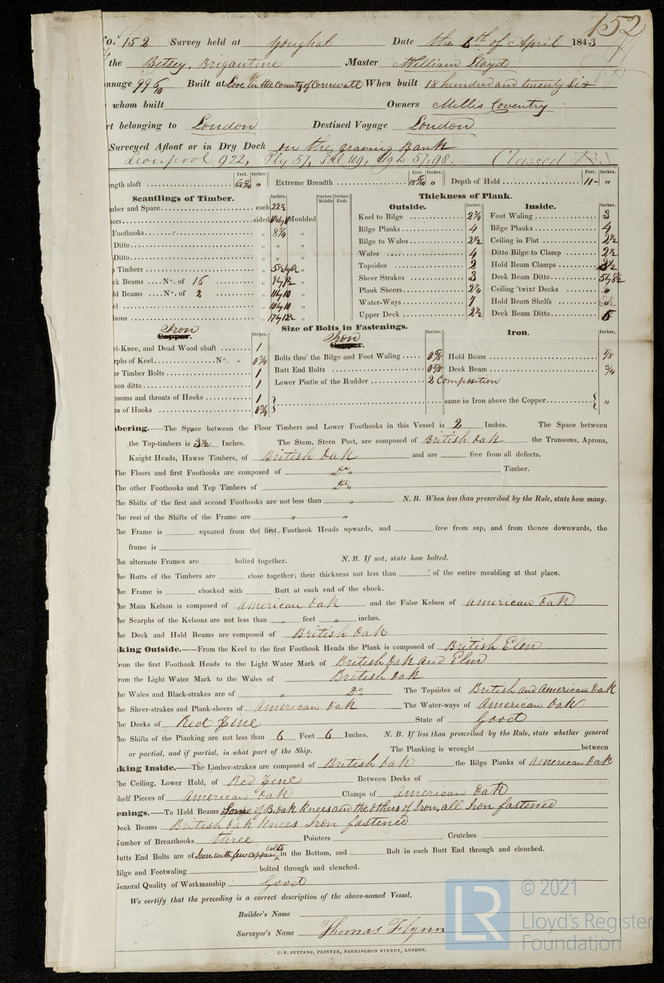 152
No. 152 Survey held at Youghal Date the 6th of April 1843
the Betsey, Brigantine Master William Lloyd
nnage 99 5/0 Built at Looe in the County of Cornwall When built 18 hundred and twenty six
whom built Owners Mills Coventry
rt belonging to London Destined Voyage London
Surveyed Afloat or in Dry Dock on the graving Bank
Liverpool 922, Fly 57,
Feet. Inches. Feet. Inches. Feet. Inches.
ngth aloft Extreme Breadth Depth of Hold 11 "
Scantlings of Timber. Thickness of Plank.
Outside. Inside.
mber and Space each 22½ Keel to Bilge 2¼ Foot Waling 3
ors sided Moulded Bilge Planks 4 Bilge Planks 4
Foothooks 8¼ Bilge to Wales 2½ Ceiling in Flat 2½
Ditto " Wales 4 Ditto Bilge to Clamp 2½
Ditto " Topsides 2 Hold Beam Clamps
p Timbers Sheer Strakes 3 Deck Beam Ditto
ck Beams No. of 16 Plank Sheers 2½ Ceiling 'twixt Decks "
ld Beams No. of 2 Water-Ways Hold Beam Shelfs
el Upper Deck 2½ Deck Beam Ditto 5
sons
Iron
Copper.
Size of Bolts in Fastenings.
Iron
Iron.
el-Knee, and Dead Wood abaft 1
rphs of Keel No. 0¾ Bolts thro' the Bilge and Foot Waling 0⅝ Hold Beam
or Timber Bolts 1 Butt End Bolts 0⅝ Deck Beam
son ditto 1 Lower Pintle of the Rudder 2 Composition
nsoms and throats of Hooks 1 same in Iron above the Copper "
ms of Hooks
bering.—The Space between the Floor Timbers and Lower Foothooks in this Vessel is 2 Inches. The Space between
the Top-timbers is 3½ Inches. The Stem, Stern Post, are composed of British Oak the Transoms, Aprons,
Knight Heads, Hawse Timbers, of British Oak and are free from all defects.
The Floors and first Foothooks are composed of Do " Timber.
The other Foothooks and Top Timbers of Do "
The Shifts of the first and second Foothooks are not less than " N. B. When less than prescribed by the Rule, state how many.
The rest of the Shifts of the Frame are " "
The Frame is squared from the first Foothook Heads upwards, and free from sap, and from thence downwards, the
frame is
The alternate Frames are bolted together. N. B. If not, state how bolted.
The Butts of the Timbers are close together; their thickness not less than of the entire moulding at that place.
The Frame is chocked with Butt at each end of the chock.
The Main Kelson is composed of American Oak and the False Kelson of American Oak
The Scarphs of the Kelsons are not less than " feet " inches.
The Deck and Hold Beams are composed of British Oak
nking Outside.—From the Keel to the first Foothook Heads the Plank is composed of British Elm
From the first Foothook Heads to the Light Water Mark of British Oak and Elm
From the Light Water Mark to the Wales of British Oak
The Wales and Black-strakes are of " Do The Topsides of British and American Oak
The Sheer-strakes and Plank-sheers of American Oak The Water-ways of American Oak
The Decks of Red Pine State of Good
The Shifts of the Planking are not less than 6 Feet 6 Inches. N. B. If less than prescribed by the Rule, state whether general
or partial, and if partial, in what part of the Ship. The Planking is wrought between
nking Inside.—The Limber-strakes are composed of British Oak the Bilge Planks of American Oak
The Ceiling, Lower Hold, of Red Pine Between Decks of
Shelf Pieces of American Oak Clamps of American Oak
enings.—To Hold Beams Some of B. oak Knees and the others of Iron, all Iron fastened
Deck Beams British Oak Knees Iron fastened
Number of Breasthooks three Pointers Crutches
Butts End Bolts are of Iron with few copper bolts in the Bottom, and Bolt in each Butt End through and clenched.
Bilge and Footwaling bolted through and clenched.
General Quality of Workmanship Good
We certify that the preceding is a correct description of the above-named Vessel,
Builder's Name
Surveyor's Name Thomas Flynn
C. F. SEYFANG, PRINTER, FARRINGDON STREET, LONDON.
LR © 2021
Lloyd's Register
Foundation